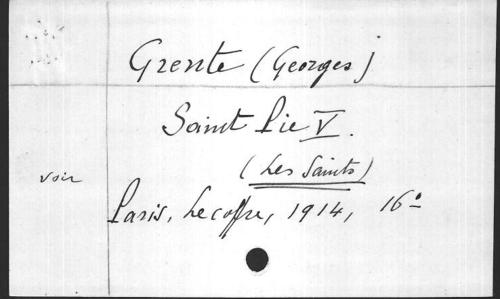 Grente (Georges)
Saint Pie V.
(Les Saints)
voir
Paris, Lecoffre, 1914, 16°